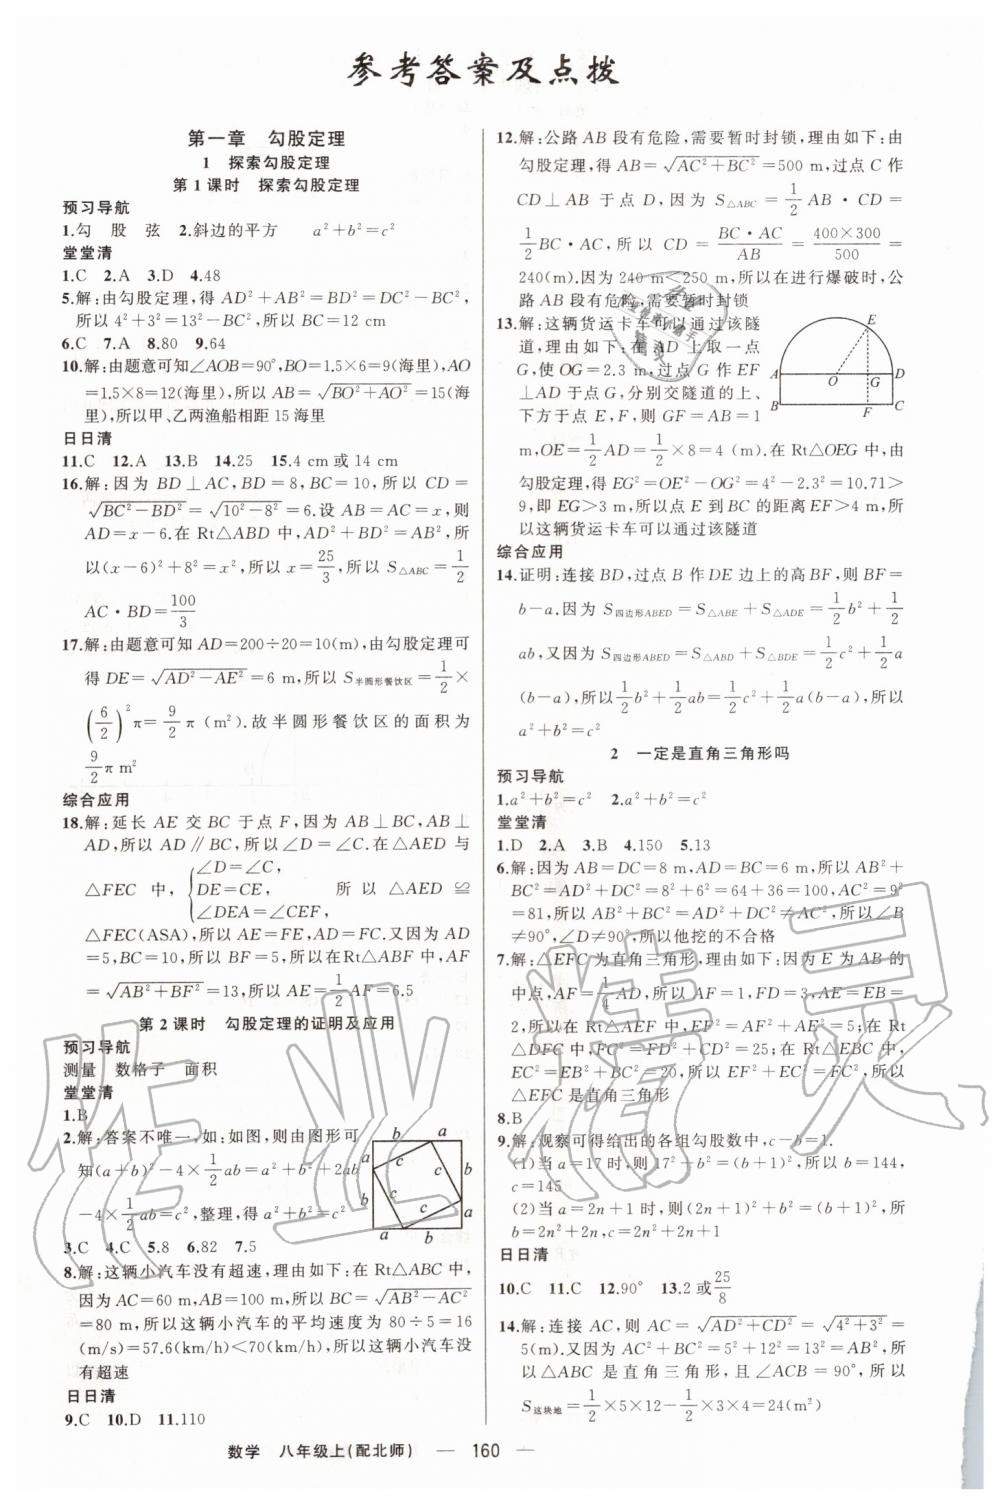 参考答案及点拨
第一章 勾股定理
1 探索勾股定理
第1课时 探索勾股定理
预习导航
1.勾 股 弦 2.斜边的平方 a²+b²=c²
堂堂清
1.C 2.A 3.D 4.48
5.解:由勾股定理,得 AD²+AB²=BD²=DC²-BC²,
所以 4²+3²=13²-BC²,所以 BC=12 cm
6.C 7.A 8.80 9.64
10.解:由题意可知∠AOB=90°,BO=1.5×6=9(海里),AO
=1.5×8=12(海里),所以 AB=√(BO²+AO²)=15(海
里),所以甲、乙两渔船相距 15 海里
日日清
11.C 12.A 13.B 14.25 15.4 cm或 14 cm
16.解:因为 BD⊥AC,BD=8,BC=10,所以 CD=
√(BC²-BD²)=√(10²-8²)=6.设 AB=AC=x,则
AD=x-6.在 Rt△ABD 中,AD²+BD²=AB²,所
以(x-6)²+8²=x²,所以 x=25/3,所以 S△ABC=1/2
AC·BD=100/3
17.解:由题意可知 AD=200÷20=10(m),由勾股定理可
得 DE=√(AD²-AE²)=6 m,所以 S半圆形餐饮区=1/2×
(6/2)²π=9/2π(m²).故半圆形餐饮区的面积为
9/2π m²
综合应用
18.解:延长 AE 交 BC 于点 F,因为 AB⊥BC,AB⊥
AD,所以 AD∥BC,所以∠D=∠C.在△AED 与
△FEC 中,{∠D=∠C, DE=CE, ∠DEA=∠CEF, 所以△AED≌
△FEC(ASA),所以 AE=FE,AD=FC.又因为 AD
=5,BC=10,所以 BF=5,所以在Rt△ABF中,AF
=√(AB²+BF²)=13,所以 AE=1/2AF=6.5
第2课时 勾股定理的证明及应用
预习导航
测量 数格子 面积
堂堂清
1.B
2.解:答案不唯一,如:如图,则由图形可
知(a+b)²-4×1/2ab=a²+b²+2ab
-4×1/2ab=c²,整理,得 a²+b²=c²
b a
c c b
a
b c c a
a b
3.C 4.C 5.8 6.82 7.5
8.解:这辆小汽车没有超速,理由如下:在 Rt△ABC 中,
因为 AC=60 m,AB=100 m,所以 BC=√(AB²-AC²)
=80 m,所以这辆小汽车的平均速度为 80÷5=16
(m/s)=57.6(km/h)<70(km/h),所以这辆小汽车没
有超速
日日清
9.C 10.D 11.110
12.解:公路 AB 段有危险,需要暂时封锁,理由如下:由
勾股定理,得 AB=√(AC²+BC²)=500 m,过点 C 作
CD⊥AB 于点 D,因为 S△ABC=1/2AB·CD=
1/2BC·AC,所以 CD=BC·AC/AB=400×300/500=
240(m).因为 240 m<250 m,所以在进行爆破时,公
路 AB 段有危险,需要暂时封锁
13.解:这辆货运卡车可以通过该隧
道,理由如下:在 AD 上取一点
G,使 OG=2.3 m,过点 G 作 EF
⊥AD于点 G,分别交隧道的上、
下方于点 E,F,则 GF=AB=1
m,OE=1/2AD=1/2×8=4(m).在 Rt△OEG 中,由
勾股定理,得 EG²=OE²-OG²=4²-2.3²=10.71>
9,即 EG>3 m,所以点 E 到 BC 的距离 EF>4 m,所
以这辆货运卡车可以通过该隧道
E
A O G D
B F C
综合应用
14.证明:连接 BD,过点 B 作 DE 边上的高 BF,则 BF=
b-a.因为 S四边形ABED=S△ABE+S△ADE=1/2b²+1/2
ab,又因为 S四边形ABED=S△ABD+S△BDE=1/2c²+1/2a
(b-a),所以1/2b²+1/2ab=1/2c²+1/2a(b-a),所以
a²+b²=c²
2 一定是直角三角形吗
预习导航
1.a²+b²=c² 2.a²+b²=c²
堂堂清
1.D 2.A 3.B 4.150 5.13
6.解:因为 AB=DC=8 m,AD=BC=6 m,所以 AB²+
BC²=AD²+DC²=8²+6²=64+36=100,AC²=9²
=81,所以 AB²+BC²=AD²+DC²≠AC²,所以∠B
≠90°,∠D≠90°,所以他挖的不合格
7.解:△EFC 为直角三角形,理由如下:因为 E 为 AB 的
中点,AF=1/4AD,所以 AF=1,FD=3,AE=EB=
2,所以在 Rt△AEF 中,EF²=AF²+AE²=5;在 Rt
△DFC 中,FC²=FD²+CD²=25;在 Rt△EBC 中,
EC²=EB²+BC²=20,所以 EF²+EC²=FC²,所以
△EFC 是直角三角形
8.B
9.解:观察可得给出的各组勾股数中,c-b=1.
(1)当 a=17 时,则 17²+b²=(b+1)²,所以 b=144,
c=145
(2)当 a=2n+1 时,则(2n+1)²+b²=(b+1)²,所
以 b=2n²+2n,c=2n²+2n+1
日日清
10.C 11.C 12.90° 13.2 或25/8
14.解:连接 AC,则 AC=√(AD²+CD²)=√(4²+3²)=
5(m).又因为 AC²+BC²=5²+12²=13²=AB²,所
以△ABC 是直角三角形,且∠ACB=90°,所以
S这块地=1/2×5×12-1/2×3×4=24(m²)
数学 八年级上(配北师) — 160 —
作业精灵